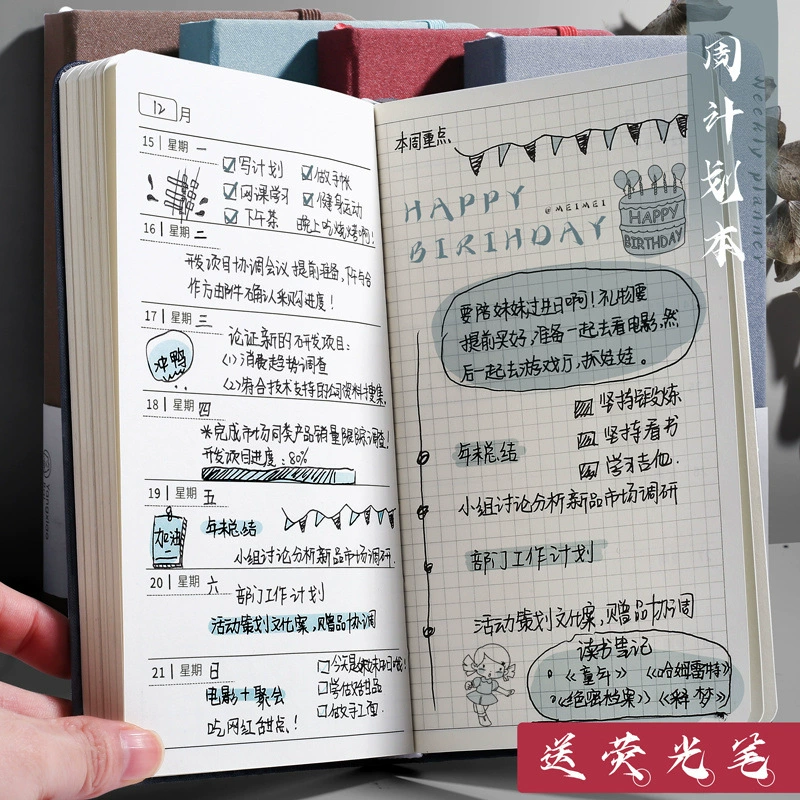 周计划本
Weekly planner
12月
15 星期 一
写计划 做手帐
网课学习 健身运动
下午茶 晚上吃烧烤啊!
16 星期 二
开发项目协调会议 提前准备,下午与合
作方由邮件确认采购进度!
17 星期 三
冲鸭
论证新的开发项目:
(1)消费趋势调查
(2)符合技术支持的公司资料搜集.
18 星期 四
*完成市场同类产品销量跟踪调查!
开发项目进度:80%
19 星期 五
加油
年末总结
小组讨论分析新品市场调研.
20 星期 六
部门工作计划
活动策划文化案,赠品协调
21 星期 日
今天是妹妹生日哦!
电影+聚会
学做甜品
做手工西.
吃网红甜点!
本周重点
HAPPY
@MEIMEI
BIRIHDAY
HAPPY
BIRTHDAY
要陪妹妹过生日啊!礼物要
提前买好,准备一起去看电影,然
后一起去游戏厅,抓娃娃。
坚持锻炼
坚持看书
学习吉他.
年末总结
小组讨论分析新品市场调研
部门工作计划
活动策划文化案,赠品协调
读书笔记
·《童年》 《哈姆雷特》
·《绝密档案》《釋梦》
送荧光笔